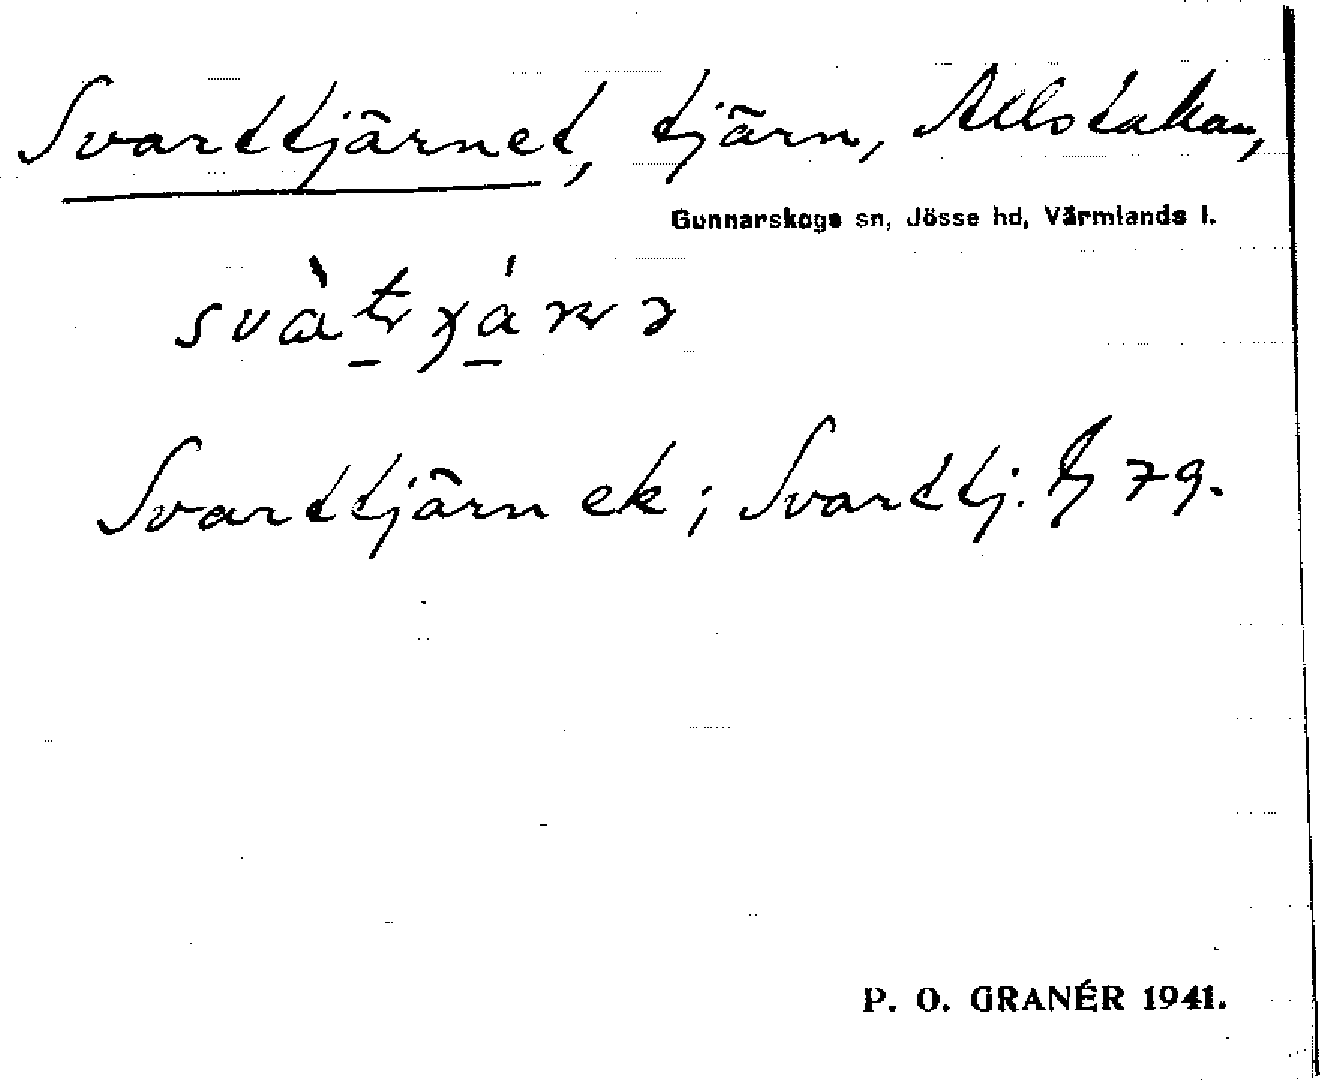 Svarttjärnet, tjärn, Allstakan,
Gunnarskogs sn, Jösse hd, Värmlands l.
Svarttjärn ek; Svarttj. 79.
P. O. GRANÉR 1941.